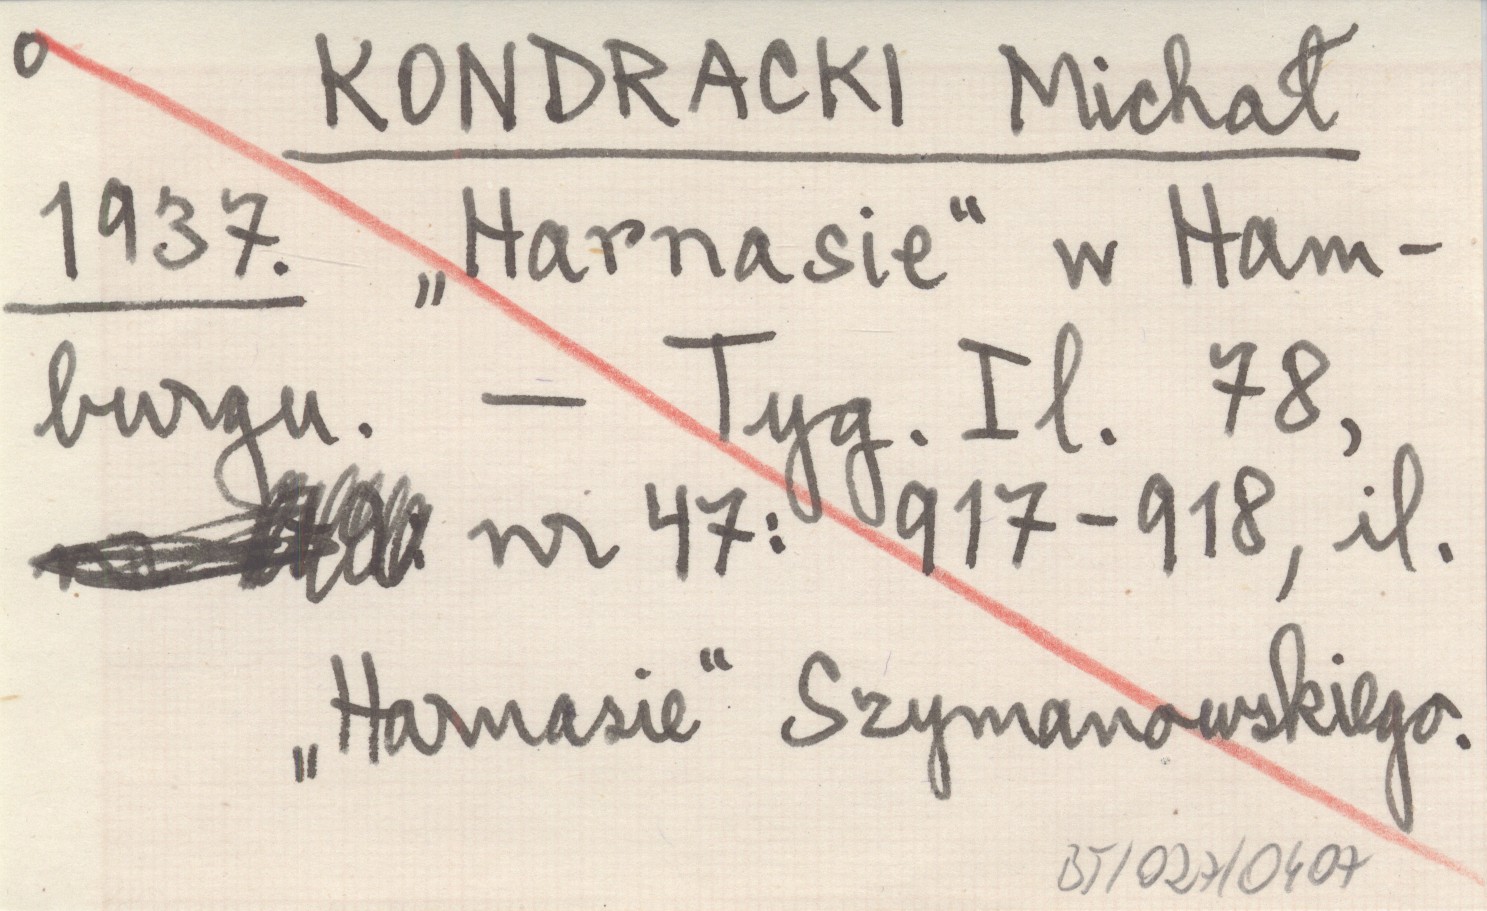 o KONDRACKI Michał
1937. „Harnasie“ w Ham-
burgu. — Tyg. Il. 78,
nr 47: 917-918, il.
„Harnasie“ Szymanowskiego.
BJ/027/0407